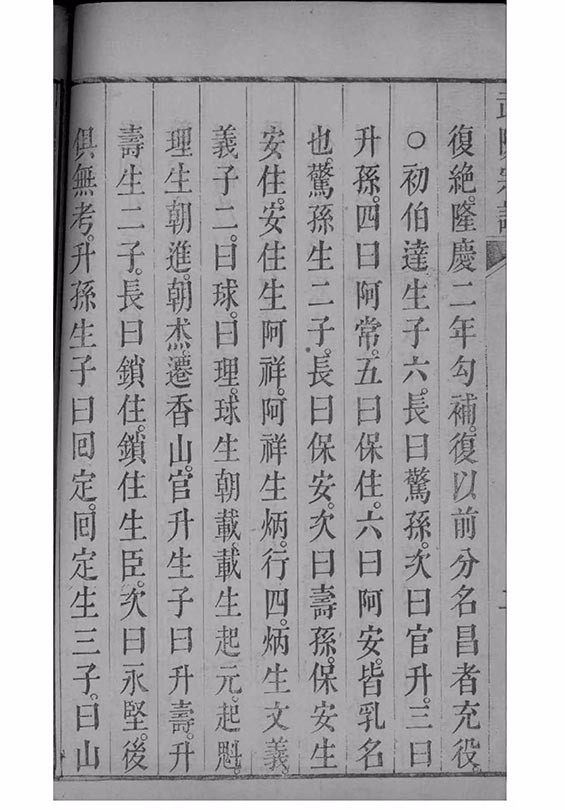 復絶。隆慶二年勾補。復以前分名昌者充役。
○初伯達生子六。長曰驚孫。次曰官升。三曰
升孫。四曰阿常。五曰保住。六曰阿安。皆乳名
也。驚孫生二子。長曰保安。次曰壽孫。保安生
安住。安住生阿祥。阿祥生炳。行四。炳生文義。
義子二。曰球。曰理。球生朝載。載生起元。起魁。
理生朝進。朝杰。遷香山。官升生子曰升壽。升
壽生二子。長曰鎖住。鎖住生臣。次曰永堅。後
俱無考。升孫生子曰回定。回定生三子。曰山